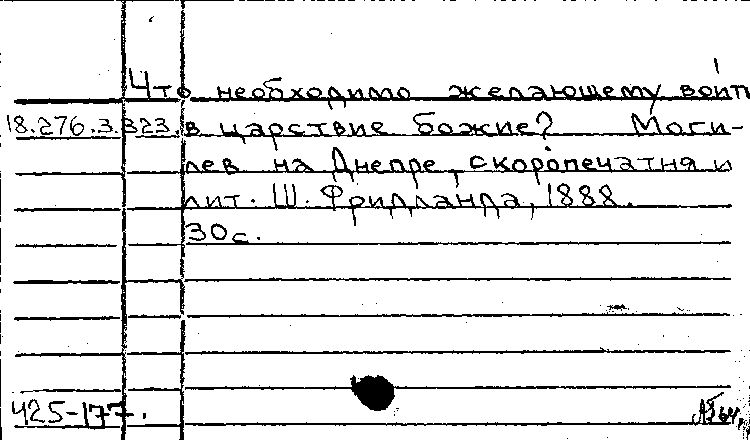 Что необходимо желающему войти
18.276.3.323. в царствие божие? Моги-
лев на Днепре, скоропечатня и
лит. Ш. Фридланда, 1888.
30с.
425-177.